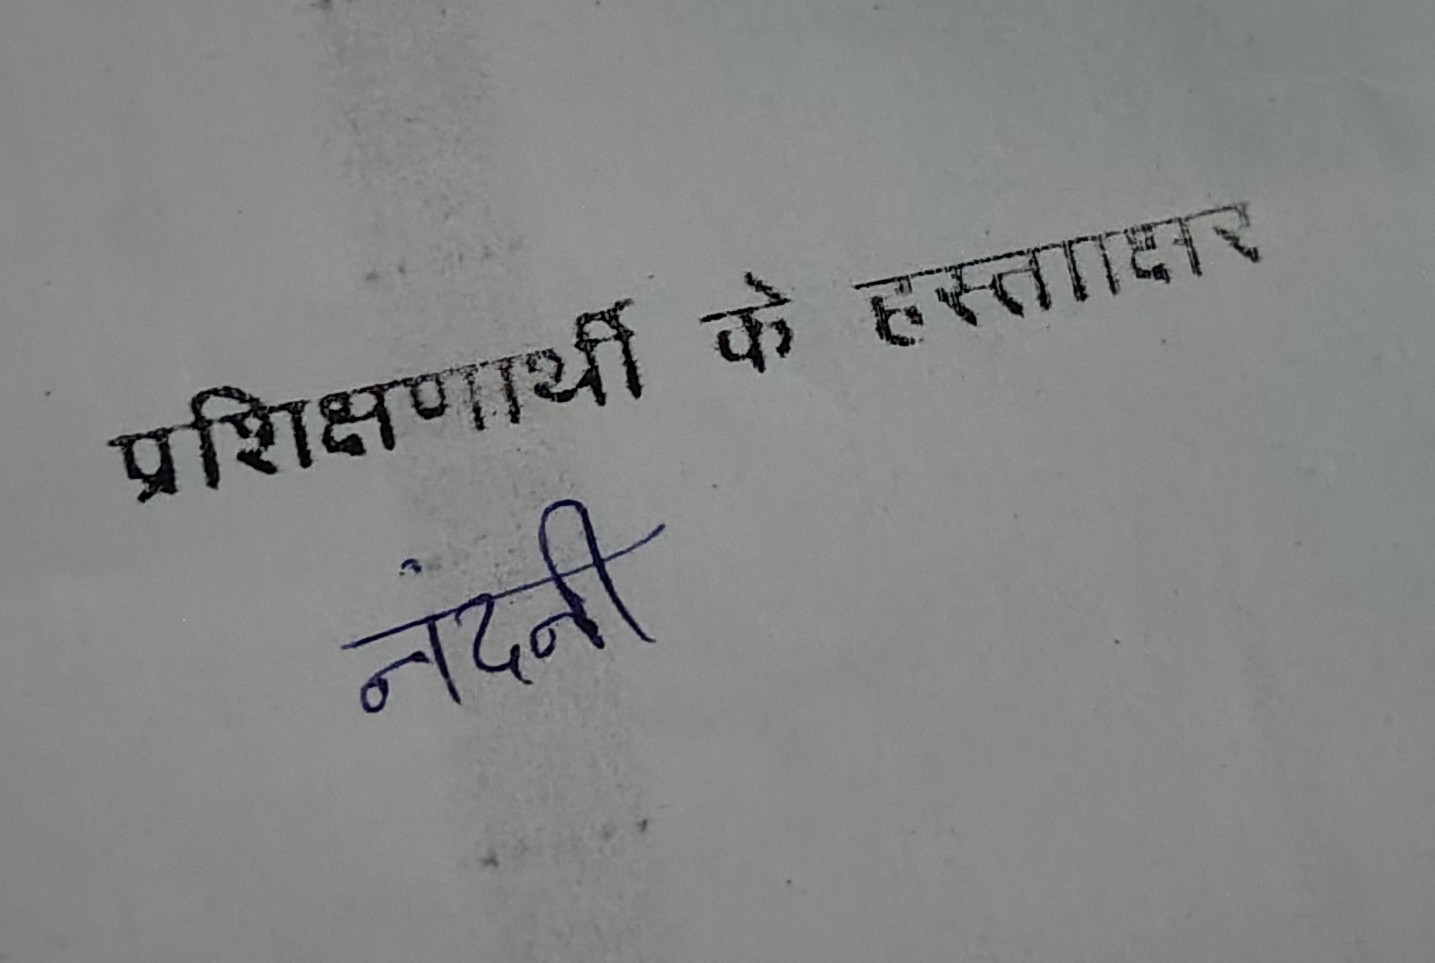 प्रशिक्षणार्थी के हस्तााक्षर
नंदनी